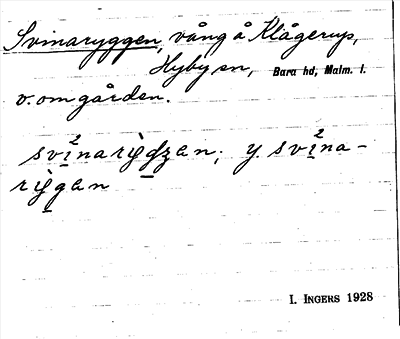 Svinaryggen, vång å Klågerup,
Hyby sn, Bara hd, Malm. l.
v. om gården.
svi̲²narìd̲zan; y. svi̲²na-
rìg̲an
I. INGERS 1928